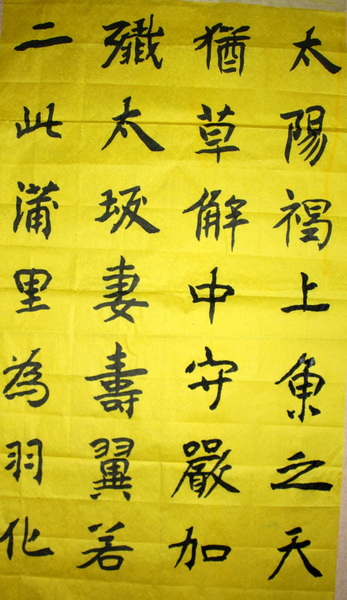 太陽褐上之天
猶草解中嚴加
殲太妻壽翼若
二此蒲里為羽化